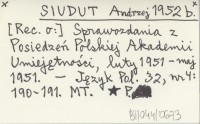 SIUDUT Andrzej 1952 b.
[Rec. o:] Sprawozdania z
Posiedzeń Polskiej Akademii
Umiejętności, luty 1951 - maj
1951. — Język Pol. 32, nr 4:
190-191. MT. ★ P